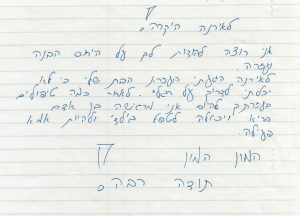 לאירנה היקרה!
אני רוצה להודות לך על היחס הבנה
ועזרה.
לאירנה הגעתי בעזרת הבת שלי כי לא
יכולתי לדרוך על רגלי. לאחר כמה טיפולים
בעזרתך להיום אני מרגישה בן אדם
בריא ויכולה לטפל בילדי ולהיות אמא
פעילה.
המון המון
תודה רבה!